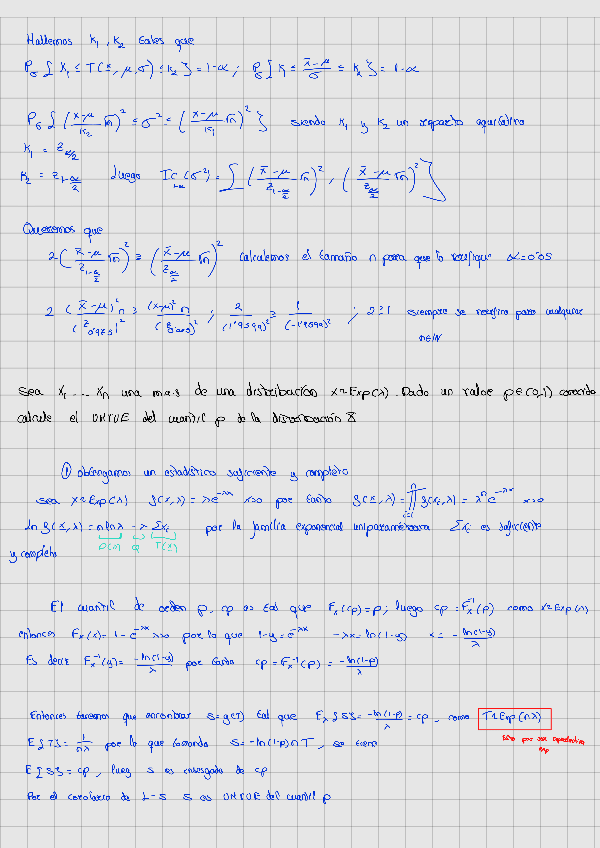 Hallemos K₁, K₂ tales que
P_σ { K₁ ≤ T(x, μ, σ) ≤ K₂ } = 1-α ; P_σ { K₁ ≤ (x̄-μ)/σ ≤ K₂ } = 1-α
P_σ { ((x̄-μ)/K₂ √n)² ≤ σ² ≤ ((x̄-μ)/K₁ √n)² } siendo K₁ y K₂ un reparto equitativo
K₁ = z_{α/2}
K₂ = z_{1-α/2} luego IC_{1-α}(σ²) = [ ((x̄-μ)/z_{1-α/2} √n)², ((x̄-μ)/z_{α/2} √n)² ]
Queremos que
2 ((x̄-μ)/z_{1-α/2} √n)² ≥ ((x̄-μ)/z_{α/2} √n)² calculemos el tamaño n para que lo verifique α=0'05
2 (x̄-μ)² n/(z_{0'975})² ≥ (x̄-μ)² n/(z_{0'025})² ; 2/(1'9599)² ≥ 1/(-1'9599)² ; 2≥1 siempre se verifica para cualquier
n∈ℕ
Sea X₁ ... Xn una m.a.s de una distribución X~Exp(λ). Dado un valor p∈(0,1) conocido
calcule el UMVUE del cuantil p de la distribución X
① obtengamos un estadístico suficiente y completo
sea X~Exp(λ) f(x,λ) = λe^{-λx} x>0 por tanto f(x,λ) = ∏_{i=1}^{n} f(xᵢ,λ) = λⁿ e^{-λx} x>0
ln f(x,λ) = n lnλ - λ Σxᵢ por la familia exponencial uniparamétrica Σxᵢ es suficiente
D(λ) Q T(x)
y completo
El cuantil de orden p, cp es tal que Fx(cp) = p; luego cp = Fx⁻¹(p) como X~Exp(λ)
entonces Fx(x) = 1 - e^{-λx} x>0 por lo que 1-y = e^{-λx} -λx = ln(1-y) x = - ln(1-y)/λ
Es decir Fx⁻¹(y) = -ln(1-y)/λ por tanto cp = Fx⁻¹(p) = -ln(1-p)/λ
Entonces tenemos que encontrar S=g(T) tal que E_λ{S} = -ln(1-p)/λ = cp, como T~Exp(nλ)
E{T} = 1/nλ por lo que tomando S = -ln(1-p) n T, se tiene
Esto por ser exp
E{S} = cp, luego S es insesgado de cp
Por el corolario de L-S S es UMVUE del cuantil p